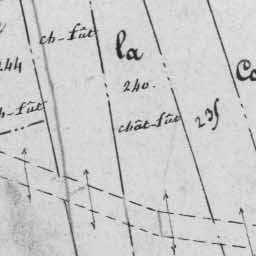 ch-fût
la
244
240.
Co
h-fût
chât-fût
235